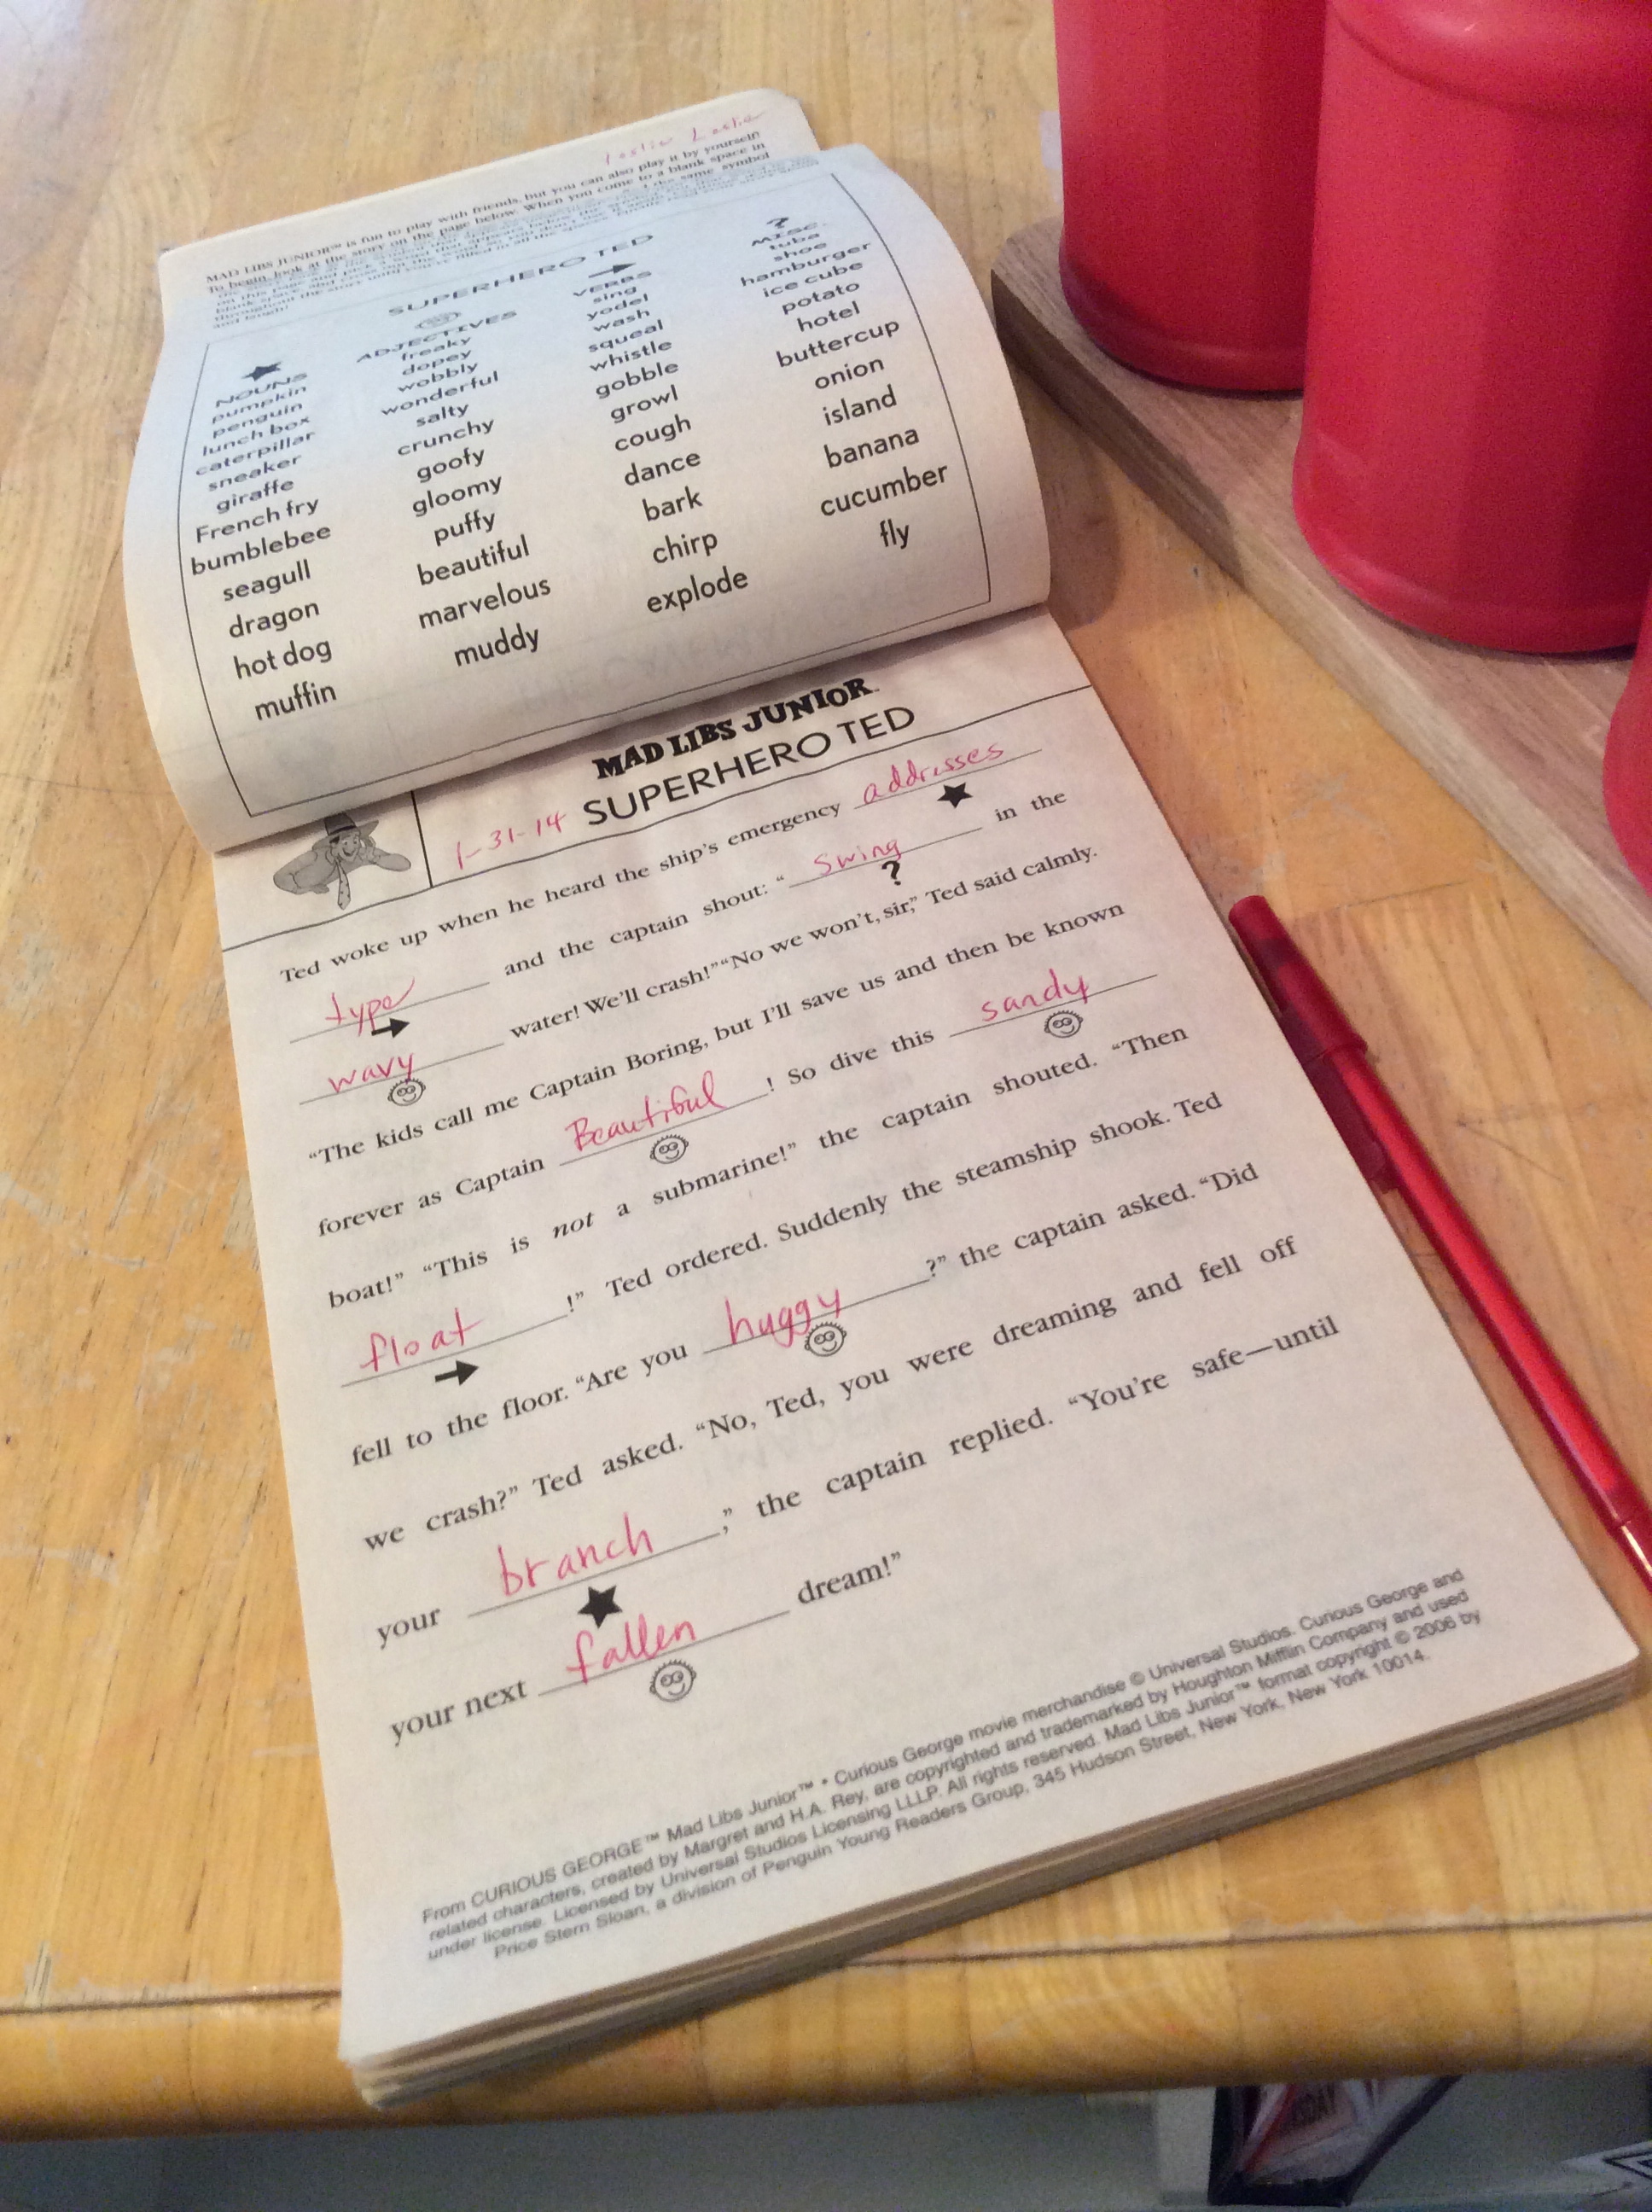 Leslie Leslie
MAD LIBS JUNIOR™ is fun to play with friends, but you can also play it by yourself!
To begin, look at the story on the page below. When you come to a blank space in
and laugh!
SUPERHERO TED
★ → ?
NOUNS ADJECTIVES VERBS MISC.
pumpkin freaky sing tuba
penguin dopey yodel shoe
lunch box wobbly wash hamburger
caterpillar wonderful squeal ice cube
sneaker salty whistle potato
giraffe crunchy gobble hotel
French fry goofy growl buttercup
bumblebee gloomy cough onion
seagull puffy dance island
dragon beautiful bark banana
hot dog marvelous chirp cucumber
muffin muddy explode fly
MAD LIBS JUNIOR™
1-31-14 SUPERHERO TED
Ted woke up when he heard the ship's emergency addresses
★
type and the captain shout: “swing in the
→ ?
wavy water! We'll crash!” “No we won't, sir,” Ted said calmly.
“The kids call me Captain Boring, but I'll save us and then be known
forever as Captain Beautiful! So dive this sandy
boat!” “This is not a submarine!” the captain shouted. “Then
float!” Ted ordered. Suddenly the steamship shook. Ted
→
fell to the floor. “Are you huggy?” the captain asked. “Did
we crash?” Ted asked. “No, Ted, you were dreaming and fell off
your branch,” the captain replied. “You're safe—until
★
your next fallen dream!”
From CURIOUS GEORGE™ Mad Libs Junior™ • Curious George movie merchandise © Universal Studios. Curious George and
related characters, created by Margret and H.A. Rey, are copyrighted and trademarked by Houghton Mifflin Company and used
under license. Licensed by Universal Studios Licensing LLLP. All rights reserved. Mad Libs Junior™ format copyright © 2006 by
Price Stern Sloan, a division of Penguin Young Readers Group, 345 Hudson Street, New York, New York 10014.